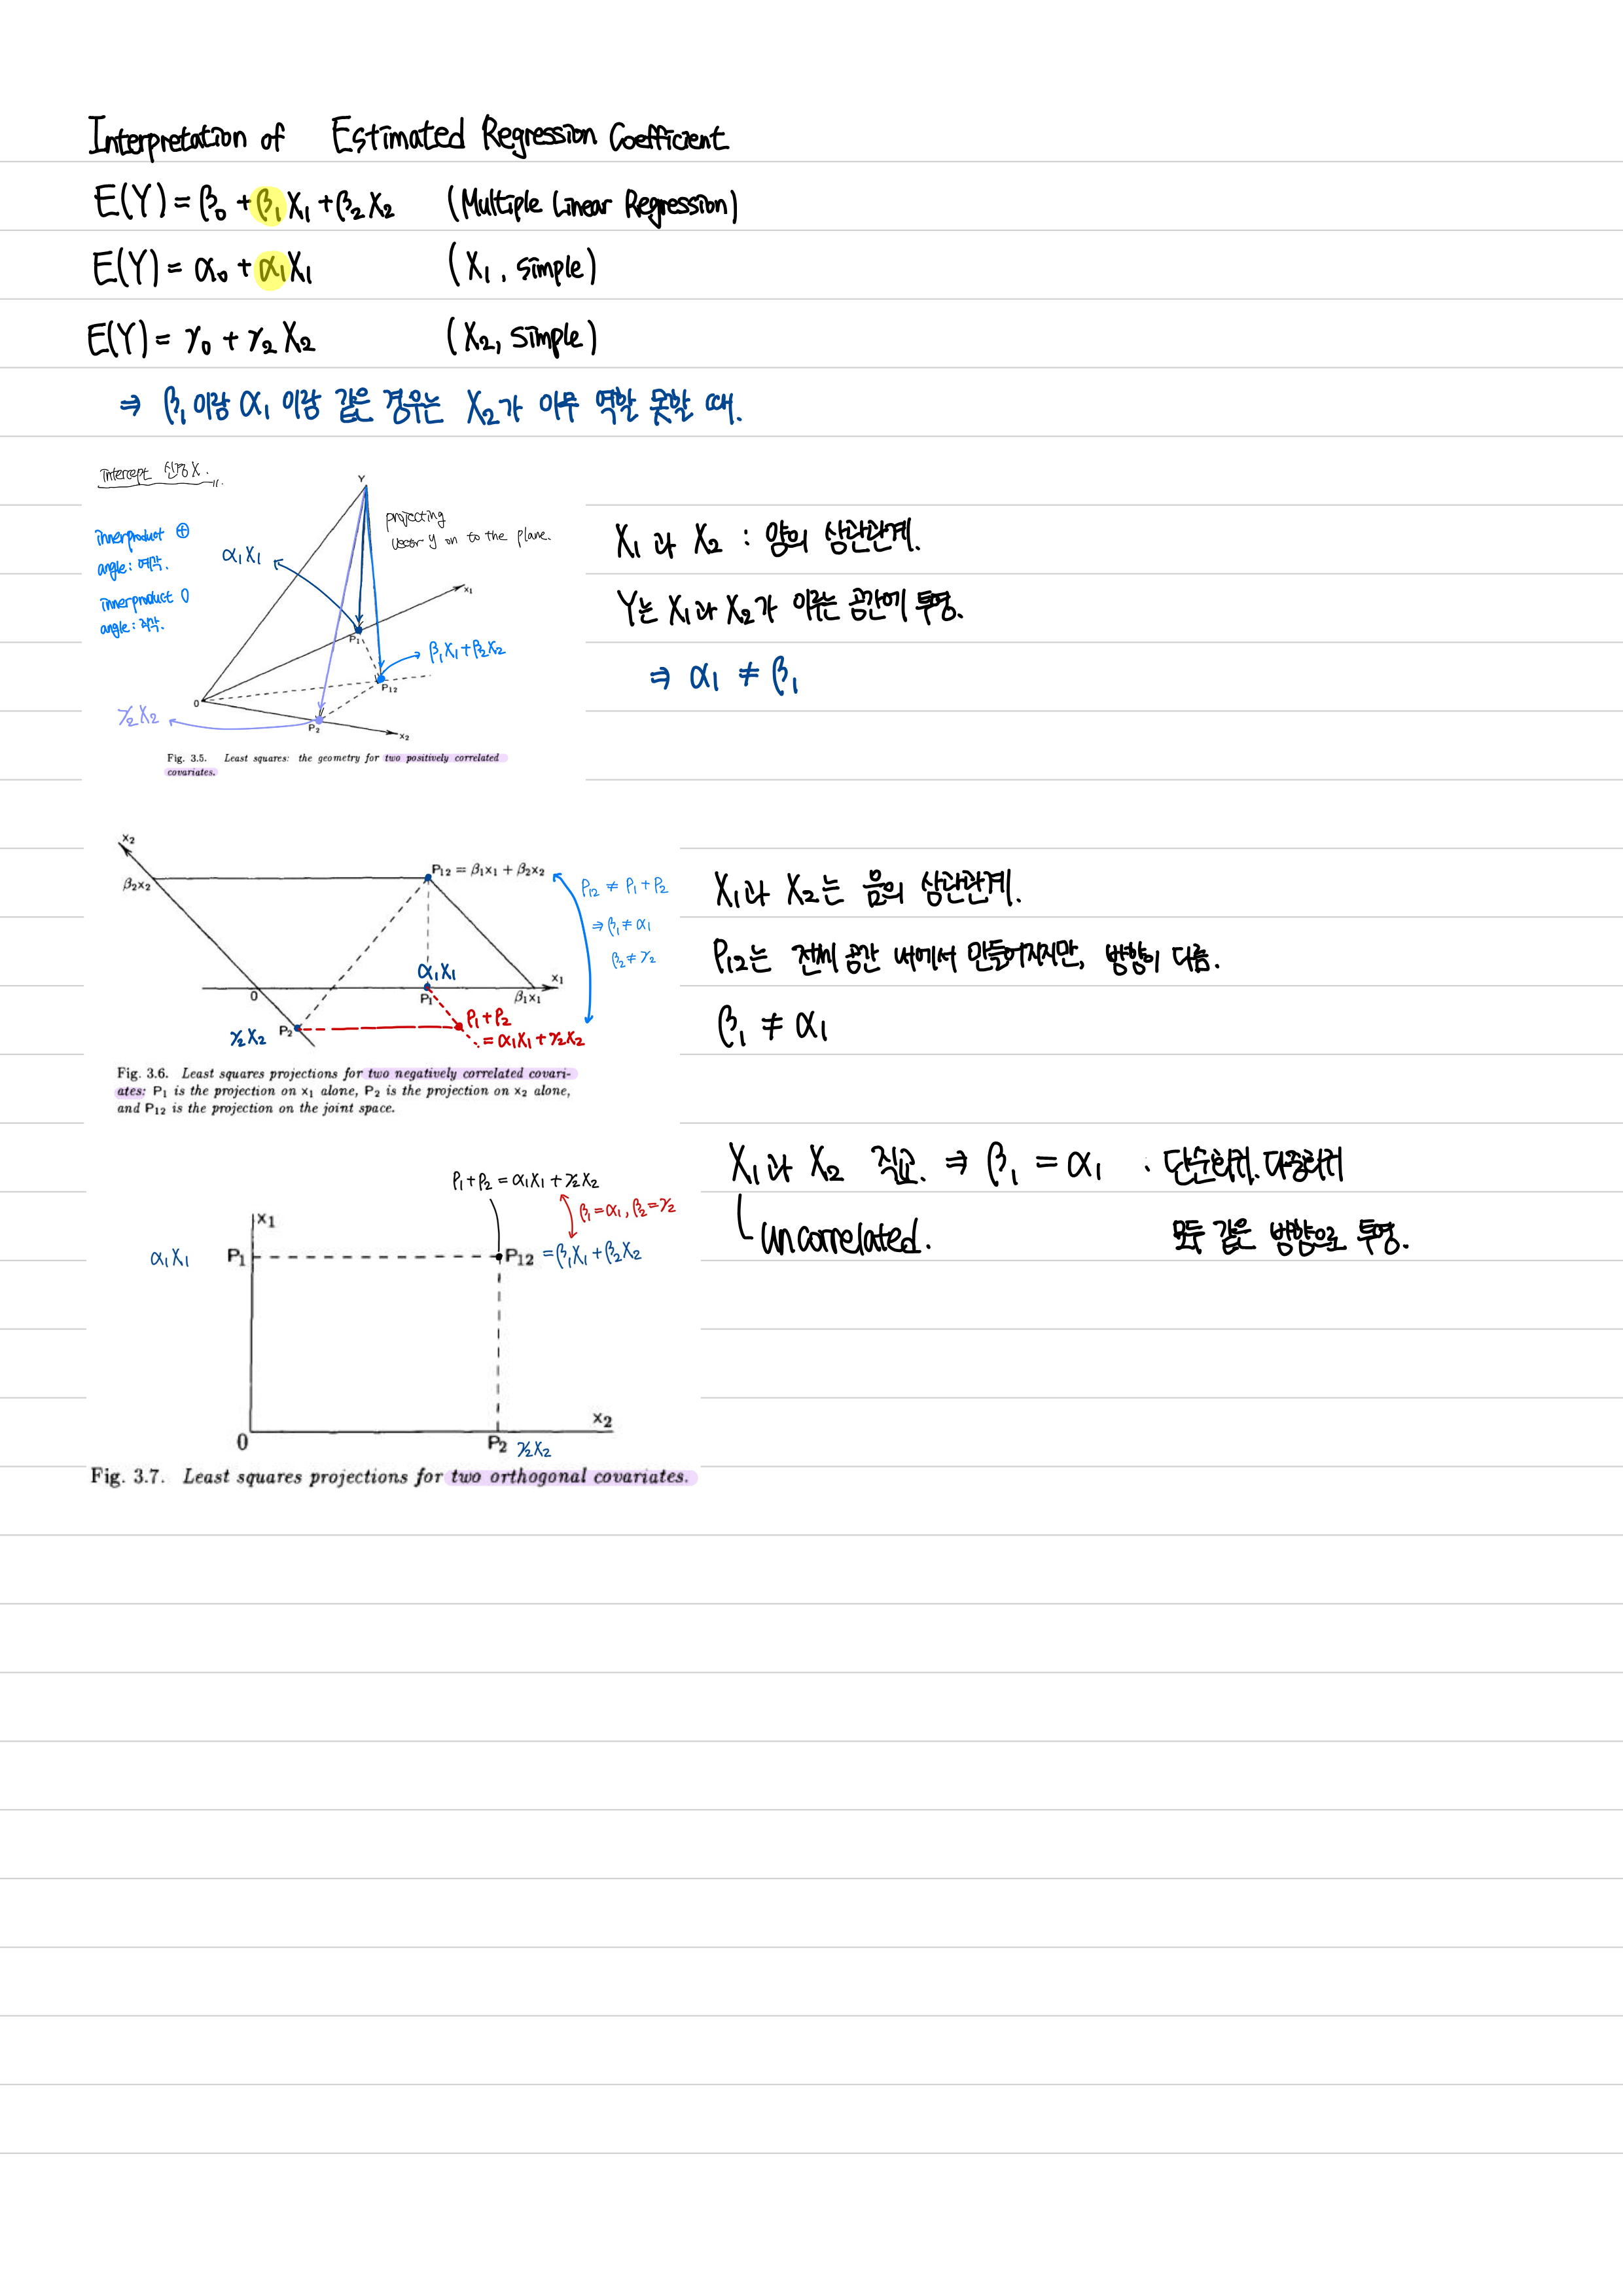 Interpretation of Estimated Regression Coefficient
E(Y) = β₀ + β₁X₁ + β₂X₂ (Multiple Linear Regression)
E(Y) = α₀ + α₁X₁ (X₁, simple)
E(Y) = γ₀ + γ₂X₂ (X₂, simple)
⇒ β₁ 이랑 α₁ 이랑 같은 경우는 X₂가 아무 역할 못할 때.
intercept 신경 X.
innerproduct ⊕
angle: 예각.
innerproduct 0
angle: 직각.
Y
projecting
vector y on to the plane.
α₁X₁
x₁
P₁
β₁X₁+β₂X₂
P₁₂
0
γ₂X₂
P₂
x₂
Fig. 3.5. Least squares: the geometry for two positively correlated
covariates.
X₁과 X₂ : 양의 상관관계.
Y는 X₁과 X₂가 이루는 공간에 투영.
⇒ α₁ ≠ β₁
x₂
β₂x₂
P₁₂ = β₁x₁ + β₂x₂
P₁₂ ≠ P₁+P₂
⇒ β₁ ≠ α₁
β₂ ≠ γ₂
α₁X₁
x₁
0
P₁
β₁x₁
γ₂X₂
P₂
P₁+P₂
= α₁X₁+γ₂X₂
Fig. 3.6. Least squares projections for two negatively correlated covari-
ates: P₁ is the projection on x₁ alone, P₂ is the projection on x₂ alone,
and P₁₂ is the projection on the joint space.
X₁과 X₂는 음의 상관관계.
P₁₂는 전체 공간 내에서 만들어지지만, 방향이 다름.
β₁ ≠ α₁
P₁+P₂ = α₁X₁+γ₂X₂
β₁=α₁, β₂=γ₂
x₁
α₁X₁
P₁
P₁₂ = β₁X₁+β₂X₂
x₂
0
P₂ γ₂X₂
Fig. 3.7. Least squares projections for two orthogonal covariates.
X₁과 X₂ 직교. ⇒ β₁ = α₁ : 단순회귀, 다중회귀
uncorrelated. 모두 같은 방향으로 투영.